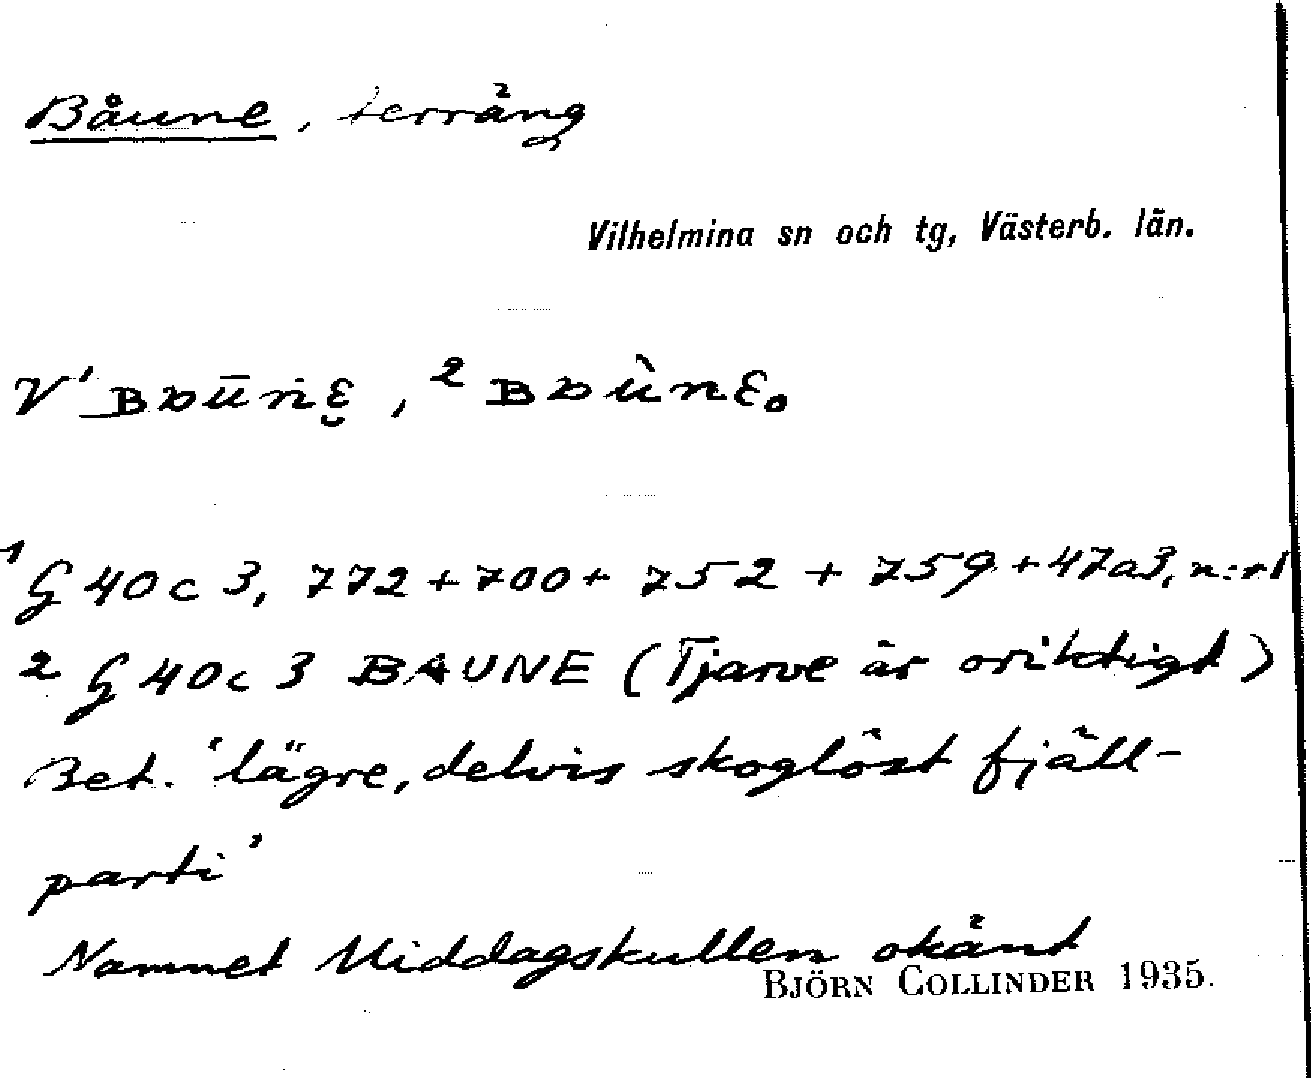 Båune, terräng
Vilhelmina sn och tg, Västerb. län.
V ¹ ʙɒūṅɛ̮, ² ʙɒùnɛ.
¹ G 40 c 3, 772 + 700 + 752 + 759 + 47a3, n:r 1
² G 40 c 3 BAUNE (Tjarve är oriktigt)
Bet. 'lägre, delvis skoglöst fjäll-
parti'
Namnet Middagskullen okänt
BJÖRN COLLINDER 1935.